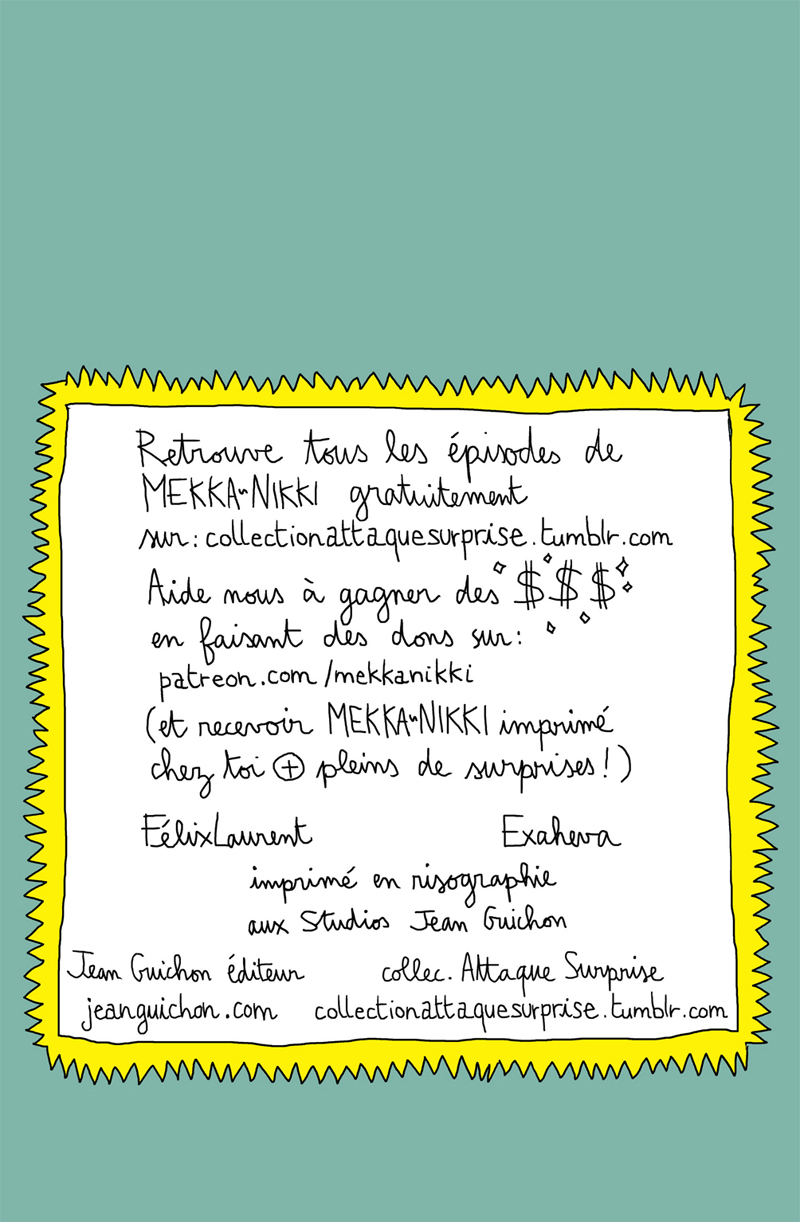 Retrouve tous les épisodes de
MEKKA-NIKKI gratuitement
sur : collectionattaquesurprise.tumblr.com
Aide nous à gagner des $ $ $
en faisant des dons sur :
patreon.com/mekkanikki
(et recevoir MEKKA-NIKKI imprimé
chez toi + pleins de surprises !)
FélixLaurent Exaheva
imprimé en risographie
aux Studios Jean Guichon
Jean Guichon éditeur collec. Attaque Surprise
jeanguichon.com collectionattaquesurprise.tumblr.com